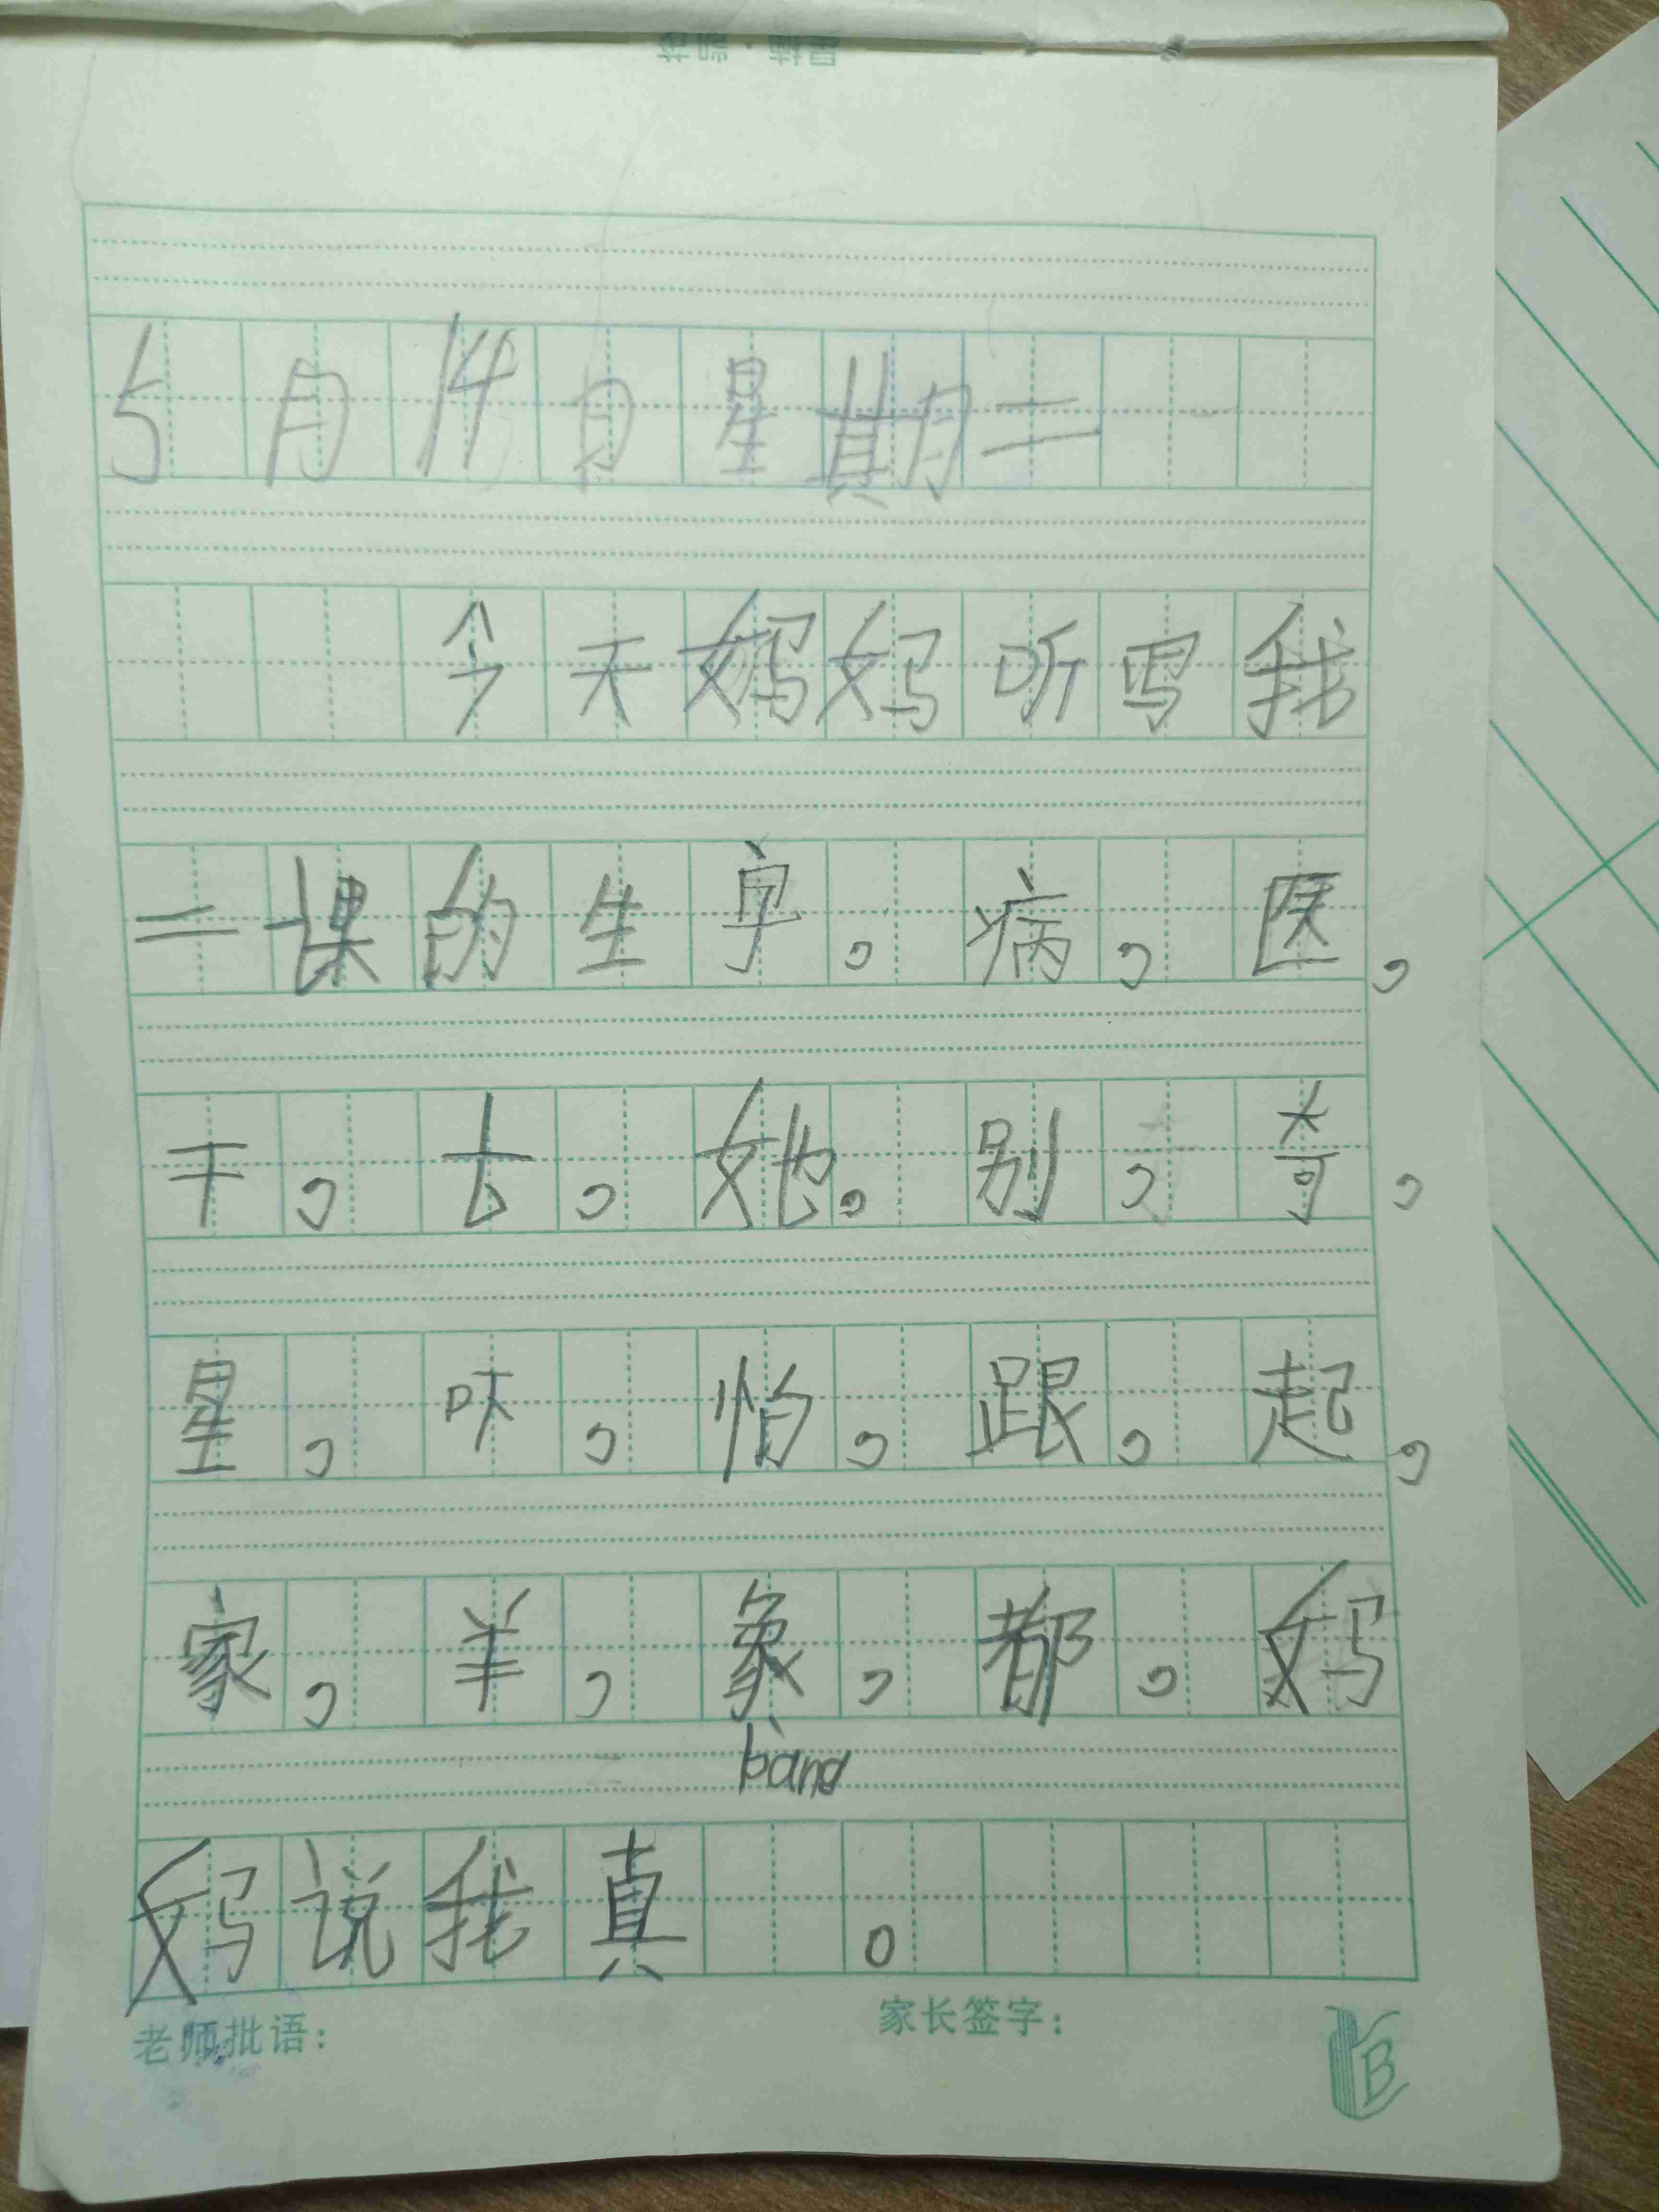 5月14日星期二
今天妈妈听写我
二课的生字。病，医，
干，去，她。别，奇，
星，吓，怕，跟，起，
家，羊，象，都，妈
bàng
妈说我真 。
老师批语：
家长签字：
B